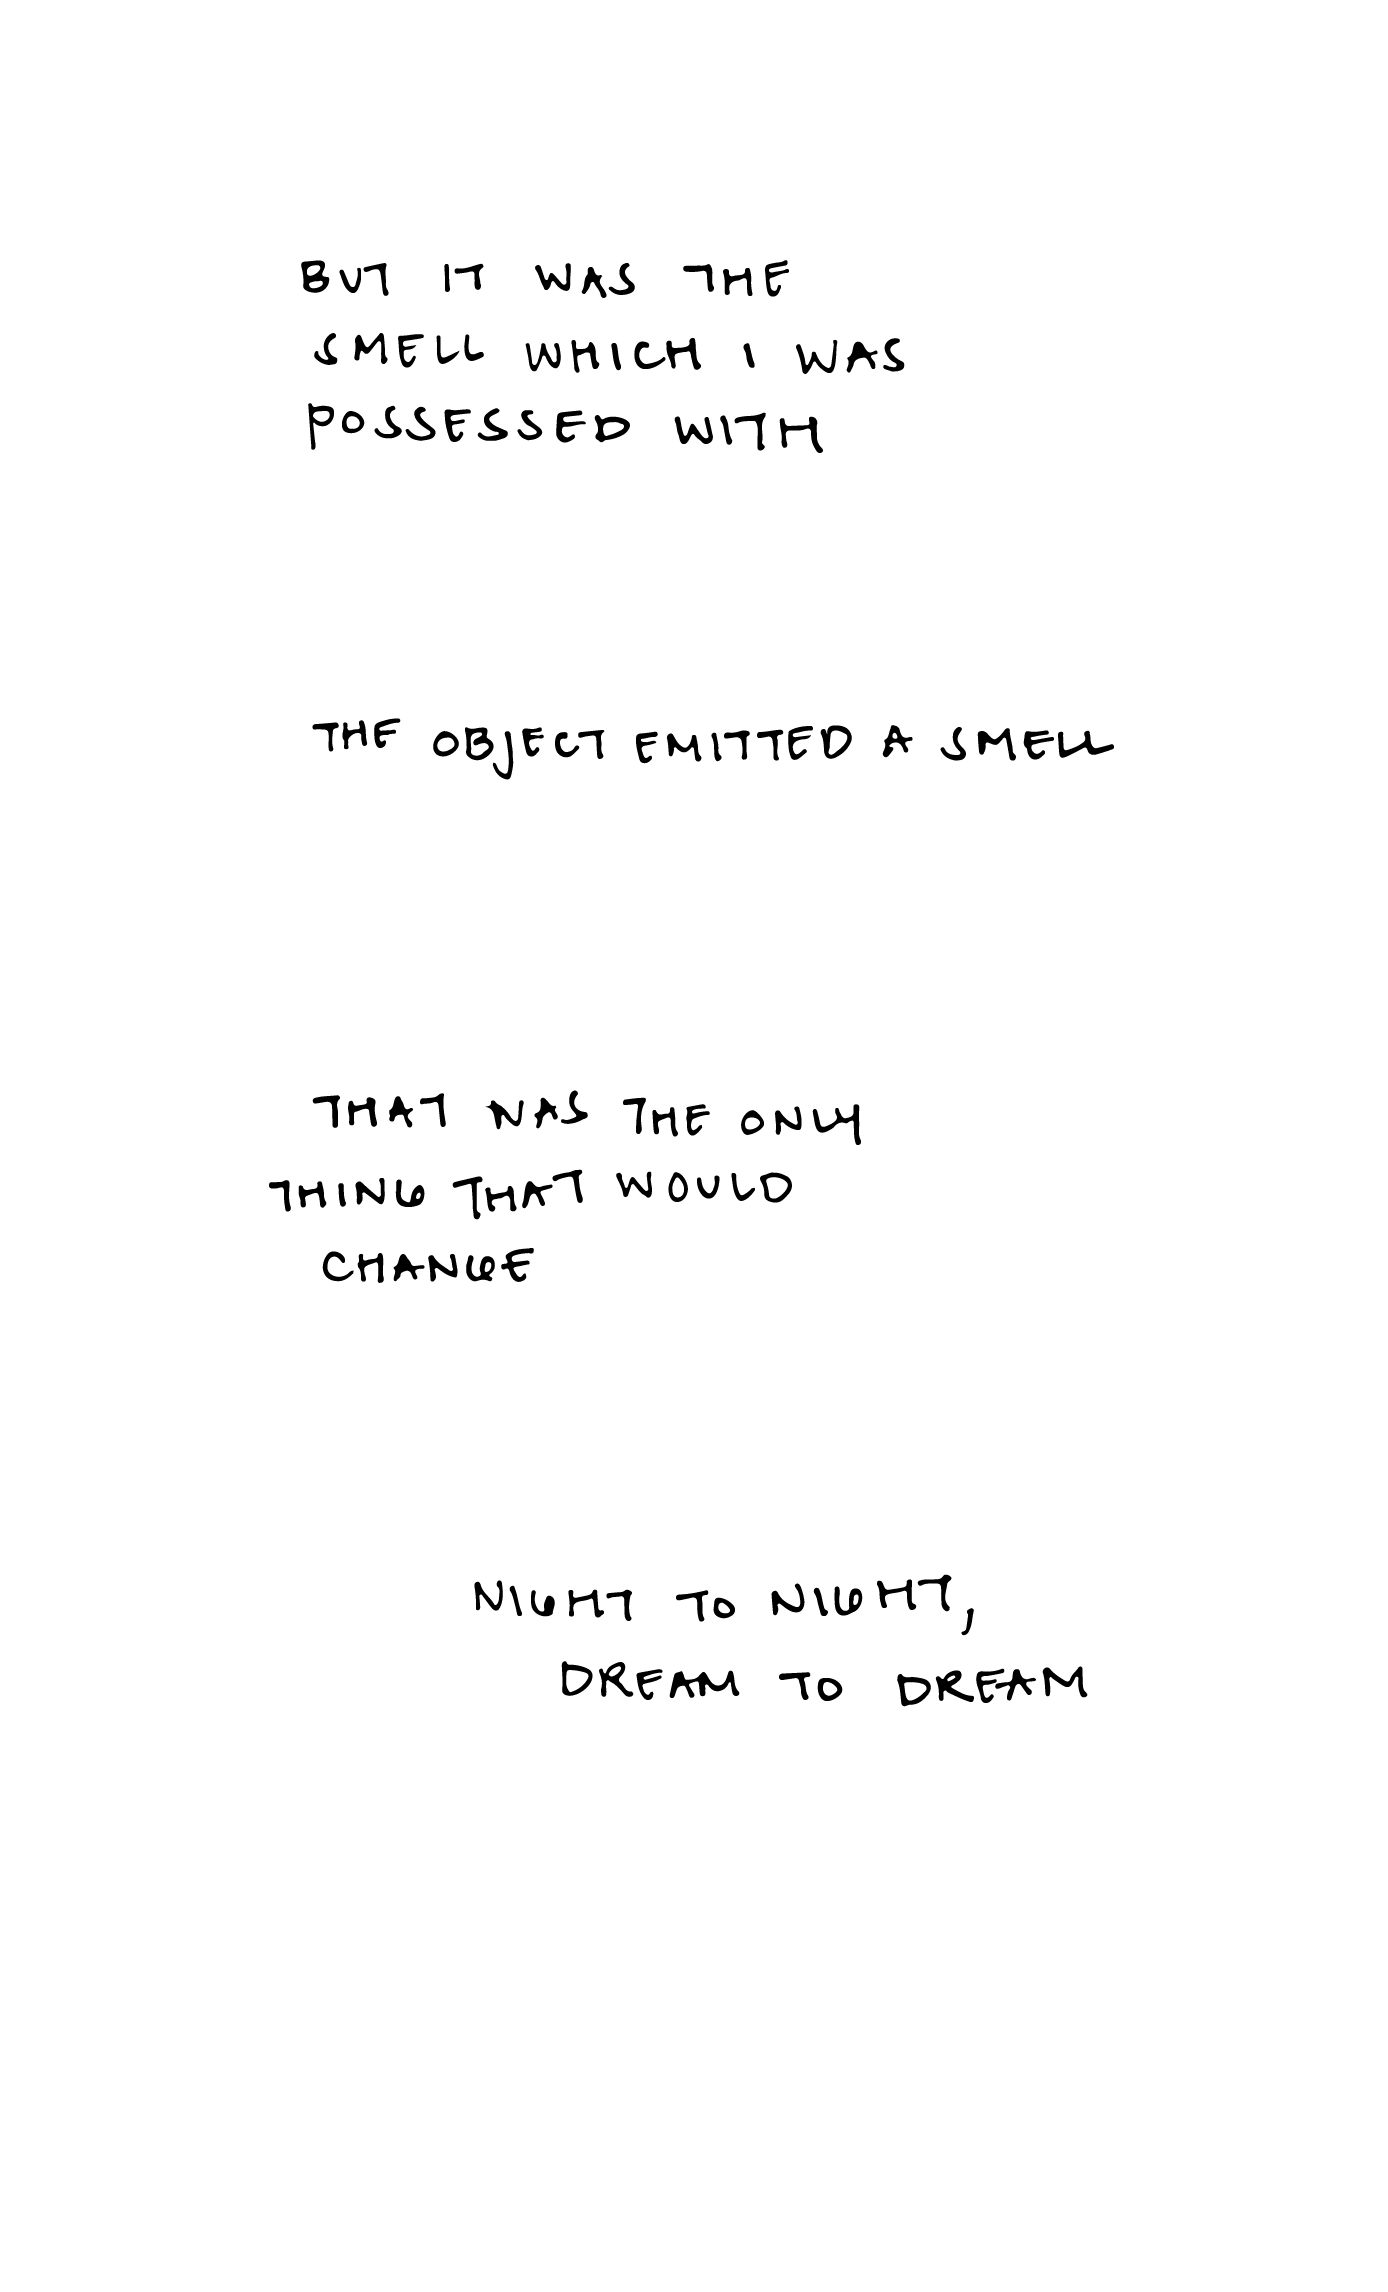 BUT IT WAS THE
SMELL WHICH I WAS
POSSESSED WITH
THE OBJECT EMITTED A SMELL
THAT WAS THE ONLY
THING THAT WOULD
CHANGE
NIGHT TO NIGHT,
DREAM TO DREAM